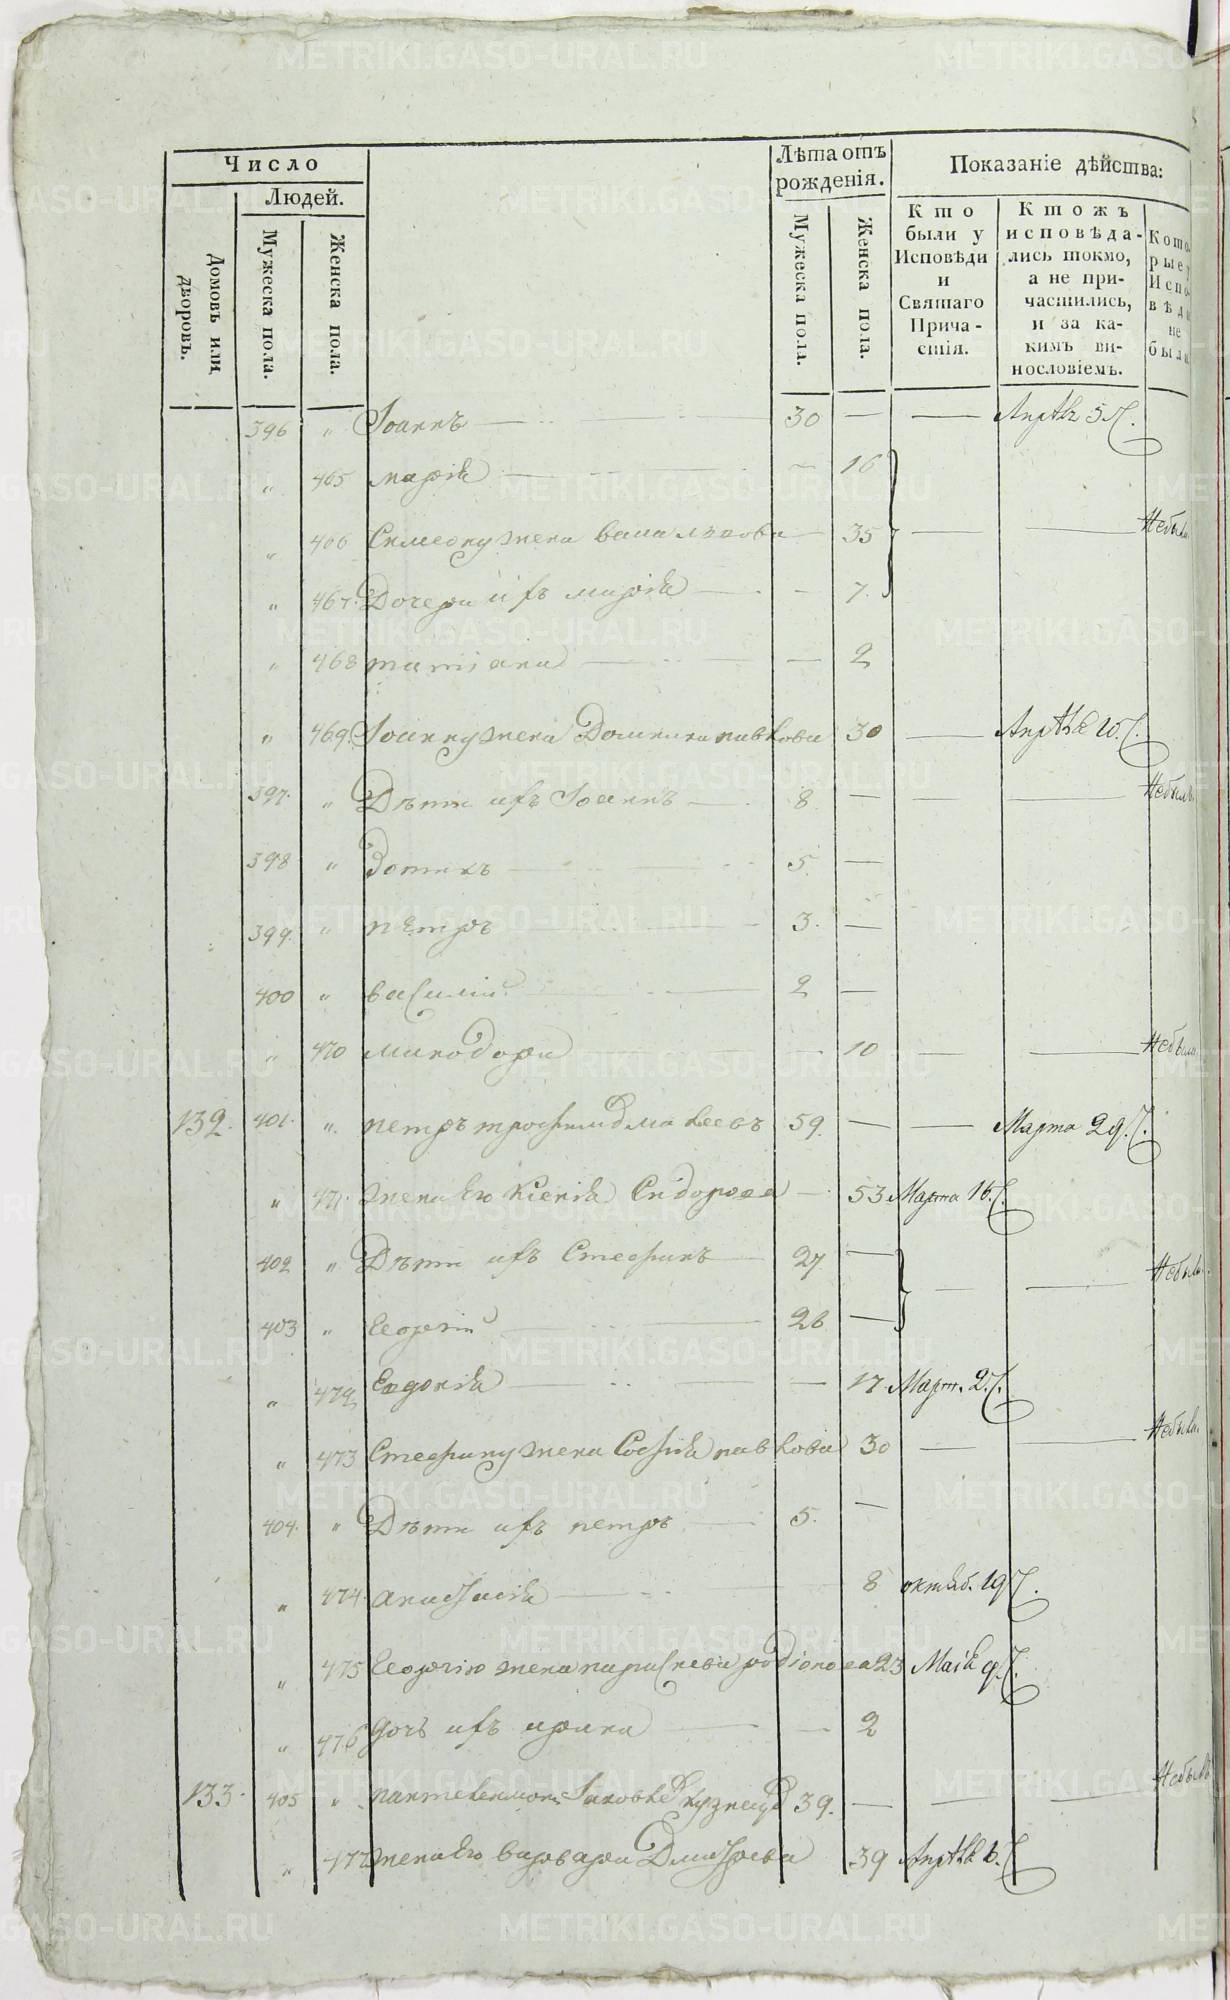 Число
Людей.
Домовъ или дворовъ.
Мужеска пола.
Женска пола.
Лѣта отъ рожденія.
Мужеска пола.
Женска пола.
Показаніе дѣйства:
Кто были у Исповѣди и Святаго Причастія.
Ктожъ исповѣдались токмо, а не причастились, и за какимъ винословіемъ.
Которые у Исповѣди не были
396 „ Іоаннъ 30 — — Апрѣля 5
„ 465 марія — 16
„ 466 Симеону жена 35 — — Небыли
„ 467. Дочери ихъ марія — 7.
„ 468 татіана — 2
„ 469. Іоанну жена Домника павлова 30 — Апрѣля 10.
397. „ Дѣти ихъ Іоаннъ 8 — — Небылъ
398 „ Зотикъ 5. —
399. „ пётръ 3. —
400 „ василій 2 —
„ 470 минодора — 10 — — Небыла
132. 401. „ петръ трофимов 59. — — Марта 29.
„ 471. жена его Ксенія Сидорова — 53 Марта 16.
402 „ Дѣти ихъ Стефанъ 27 — — — Небыли
403 „ Георгій 26 —
„ 472 Евдокія — 17 Март. 27.
„ 473 Стефану жена Софія павлова 30 — — Небыла
404. „ Дѣти ихъ петръ 5. —
„ 474. анастасія 8 октяб. 19
„ 475 Георгію жена параскева родіонова 23 Маія 9.
„ 476 дочь ихъ ирина — 2
133. 405 „ пантелеимонъ Іаковлев Кузнецов 39. — — — Небылъ
„ 477 жена его варвара Дмитрева 39 Апрѣля 6.
METRIKI.GASO-URAL.RU